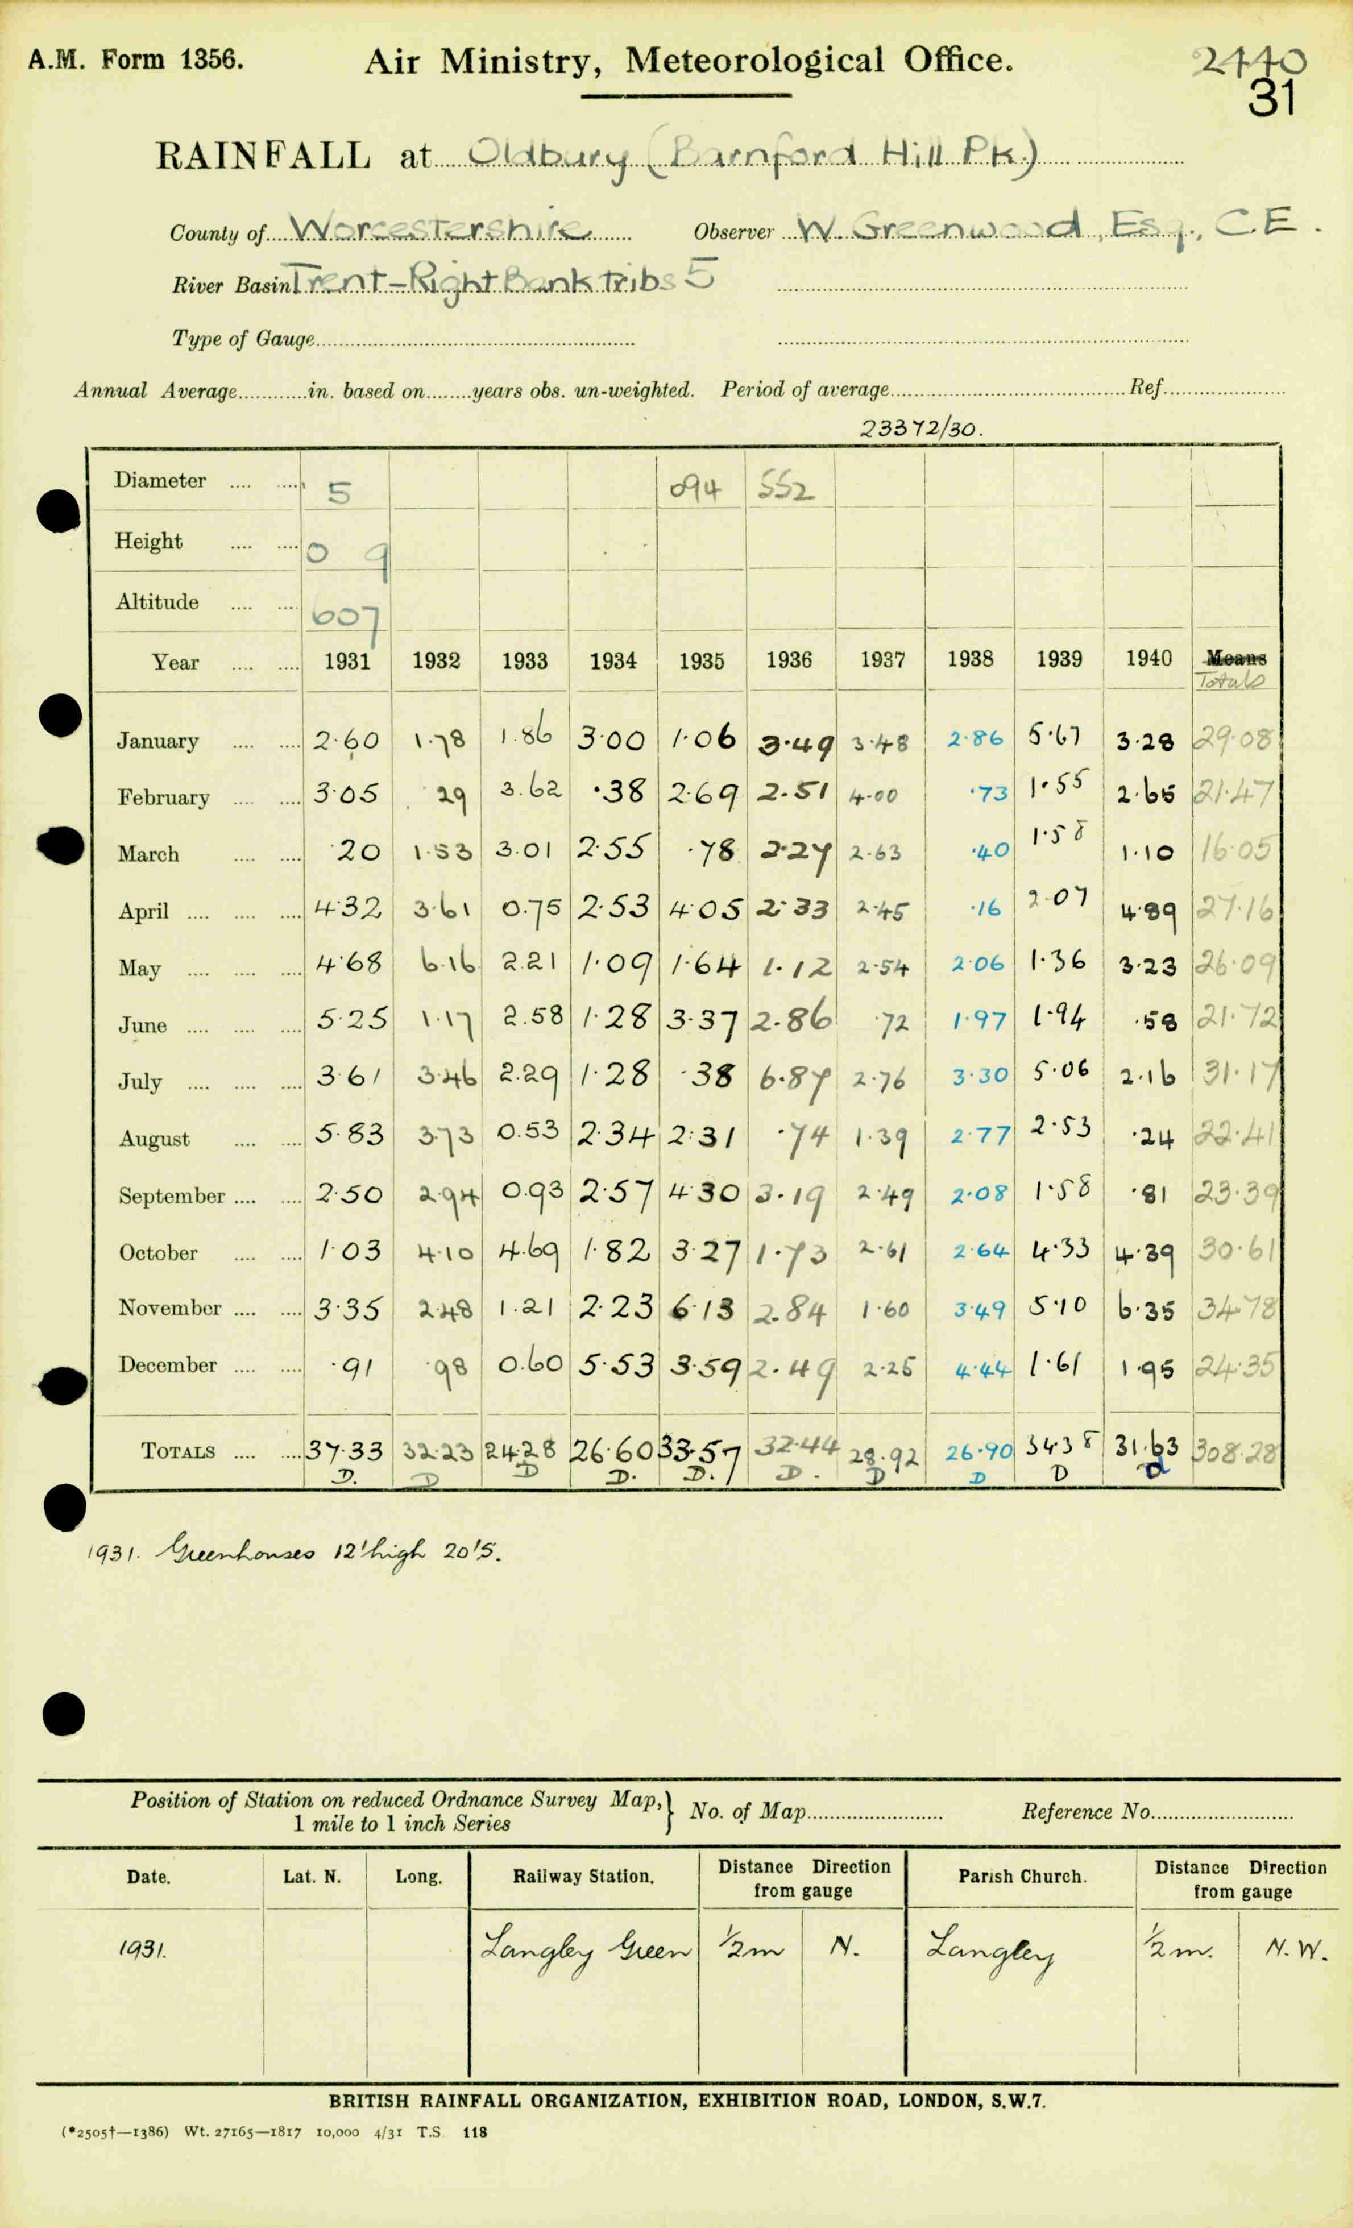 A.M. Form 1356. Air Ministry, Meteorological Office. 2440
31
RAINFALL at Oldbury (Barnford Hill Pk.)
County of Worcestershire Observer W. Greenwood, Esq., C.E.
River Basin Trent-Right Bank tribs 5
Type of Gauge
Annual Average in. based on years obs. un-weighted. Period of average Ref.
23372/30.
Diameter 5 094 552
Height 0 9
Altitude 607
Year 1931 1932 1933 1934 1935 1936 1937 1938 1939 1940 Means
Totals
January 2.60 1.78 1.86 3.00 1.06 3.49 3.48 2.86 5.67 3.28 29.08
February 3.05 .29 3.62 .38 2.69 2.51 4.00 .73 1.55 2.65 21.47
March .20 1.53 3.01 2.55 .78 2.27 2.63 .40 1.58 1.10 16.05
April 4.32 3.61 0.75 2.53 4.05 2.33 2.45 .16 2.07 4.89 27.16
May 4.68 6.16 2.21 1.09 1.64 1.12 2.54 2.06 1.36 3.23 26.09
June 5.25 1.17 2.58 1.28 3.37 2.86 .72 1.97 1.94 .58 21.72
July 3.61 3.46 2.29 1.28 .38 6.87 2.76 3.30 5.06 2.16 31.17
August 5.83 3.73 0.53 2.34 2.31 .74 1.39 2.77 2.53 .24 22.41
September 2.50 2.94 0.93 2.57 4.30 3.19 2.49 2.08 1.58 .81 23.39
October 1.03 4.10 4.69 1.82 3.27 1.73 2.61 2.64 4.33 4.39 30.61
November 3.35 2.48 1.21 2.23 6.13 2.84 1.60 3.49 5.10 6.35 34.78
December .91 .98 0.60 5.53 3.59 2.49 2.25 4.44 1.61 1.95 24.35
TOTALS 37.33 32.23 24.28 26.60 33.57 32.44 28.92 26.90 34.38 31.63 308.28
D. D D D. D. D. D D D d
1931. Greenhouses 12' high 20' S.
Position of Station on reduced Ordnance Survey Map, } No. of Map Reference No.
1 mile to 1 inch Series
Date. Lat. N. Long. Railway Station. Distance Direction Parish Church. Distance Direction
from gauge from gauge
1931. Langley Green ½m N. Langley ½m. N.W.
BRITISH RAINFALL ORGANIZATION, EXHIBITION ROAD, LONDON, S.W.7.
(*2505†—1386) Wt. 27165—1817 10,000 4/31 T.S. 118